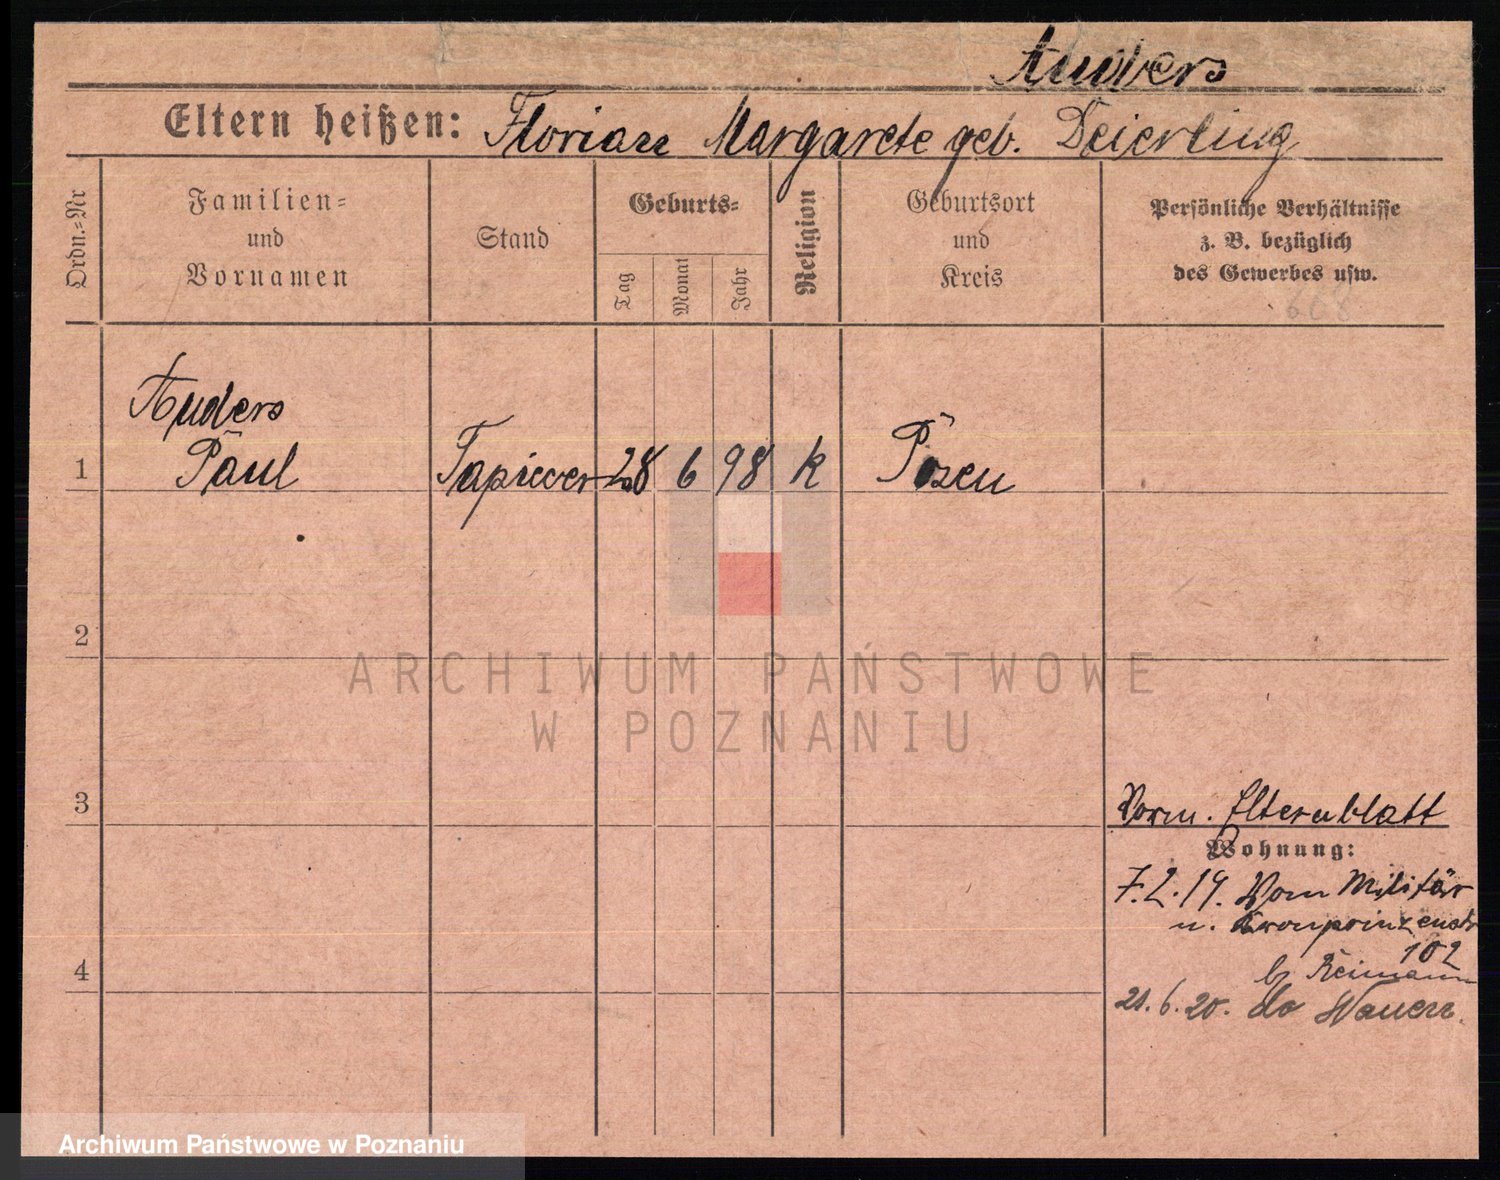 Anders
Eltern heißen: Florian Margarete geb. Deierling
Ordn.=Nr
Familien=
und
Vornamen
Stand
Geburts=
Tag
Monat
Jahr
Religion
Geburtsort
und
Kreis
Persönliche Verhältnisse
z. B. bezüglich
des Gewerbes usw.
608
Anders
1 Paul Tapiever 28 6 98 k Posen
2
ARCHIWUM PAŃSTWOWE
W POZNANIU
3
Vorm. Elternblatt
Wohnung:
7.2.19. Vom Militär
n. Kronprinzenstr
102
4
b Reimann
21.6.20. do
Archiwum Państwowe w Poznaniu